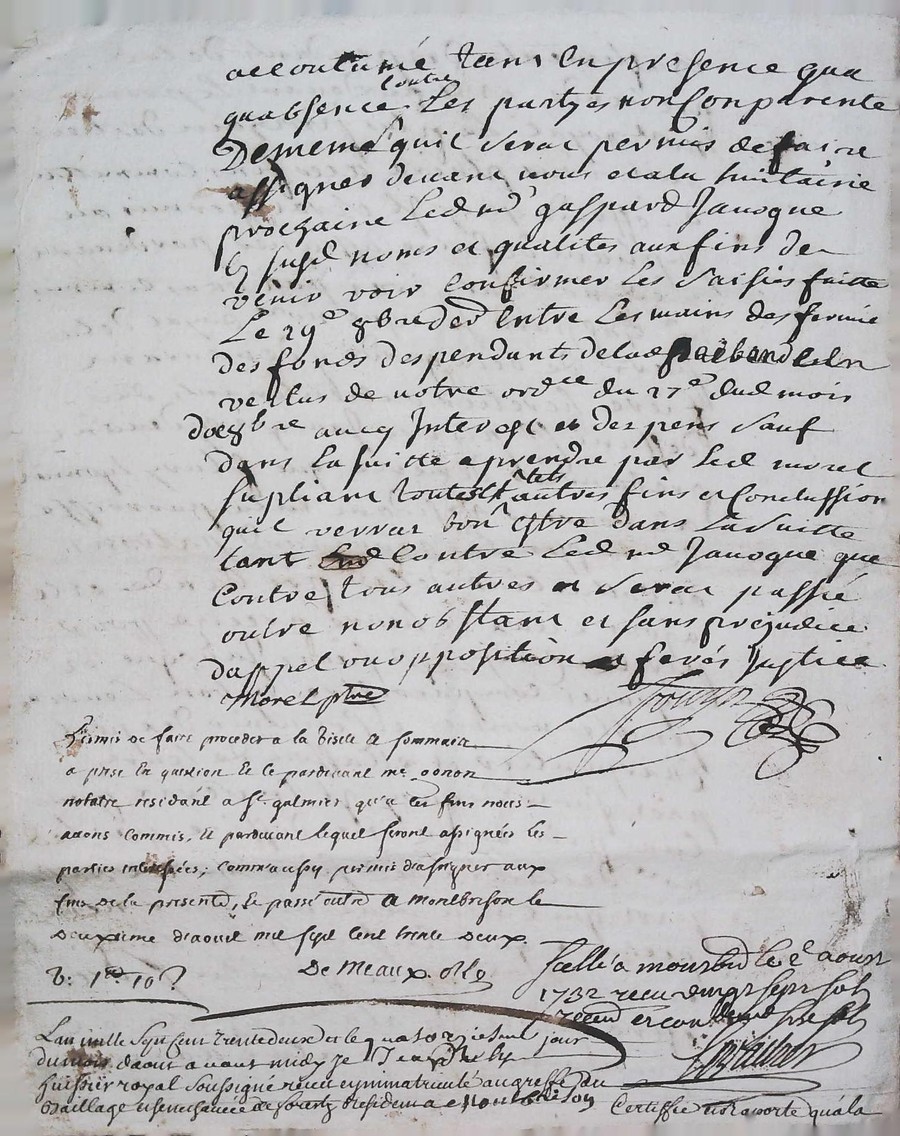 accoutumé tant en presence qua
quabsence contre Les partyes non Comparente
Dememe quil serat permis de faire
assigner devant nous et a la huitaine
prochaine Led md gaspard Janogue
Es susd noms et qualités aux fins de
venir voir Confirmer Les Saisies faitte
Le 29e 8bre der Entre Les mains des fermie
des fonds despendants de lad prebande En
vertus de notre ordce du 27e dud mois
doc8bre avecq Interest et despens Sauf
dans La suitte a prendre par Led morel
supliant toutes autres fins et Conclussion
quil verrat bon Estre dans La suitte
tant Contre Led md Janogue que
Contre tous autres et serat passé
outre nonobstant et sans prejudice
dappel ou opposition et ferés Justice
Morel ptre
Permis de faire proceder a la Visite & sommaire
a prise En question Et ce pardevant me gonon
notaire residant a St galmier qu'a ces fins nous
avons Commis, Et pardevant lequel seront assignées les
parties interessées; comm'aussy permis d'assigner aux
fins de la presente, Et passé outre a Montbrison le
Deuxieme d'aoust mil sept Cent trente Deux.
De Meaux
Scellé a mombrd le 2e aoust
1732 receu vingt sept sols
Lan mille Sept Cent Trente deux et le quatorzieme jour
du mois daout avant midy je
huissier royal soussigné receu immatriculé au greffe du
Baillage et senechaucée de forest Residant a Montbrison Certiffie et raporte qu'a la